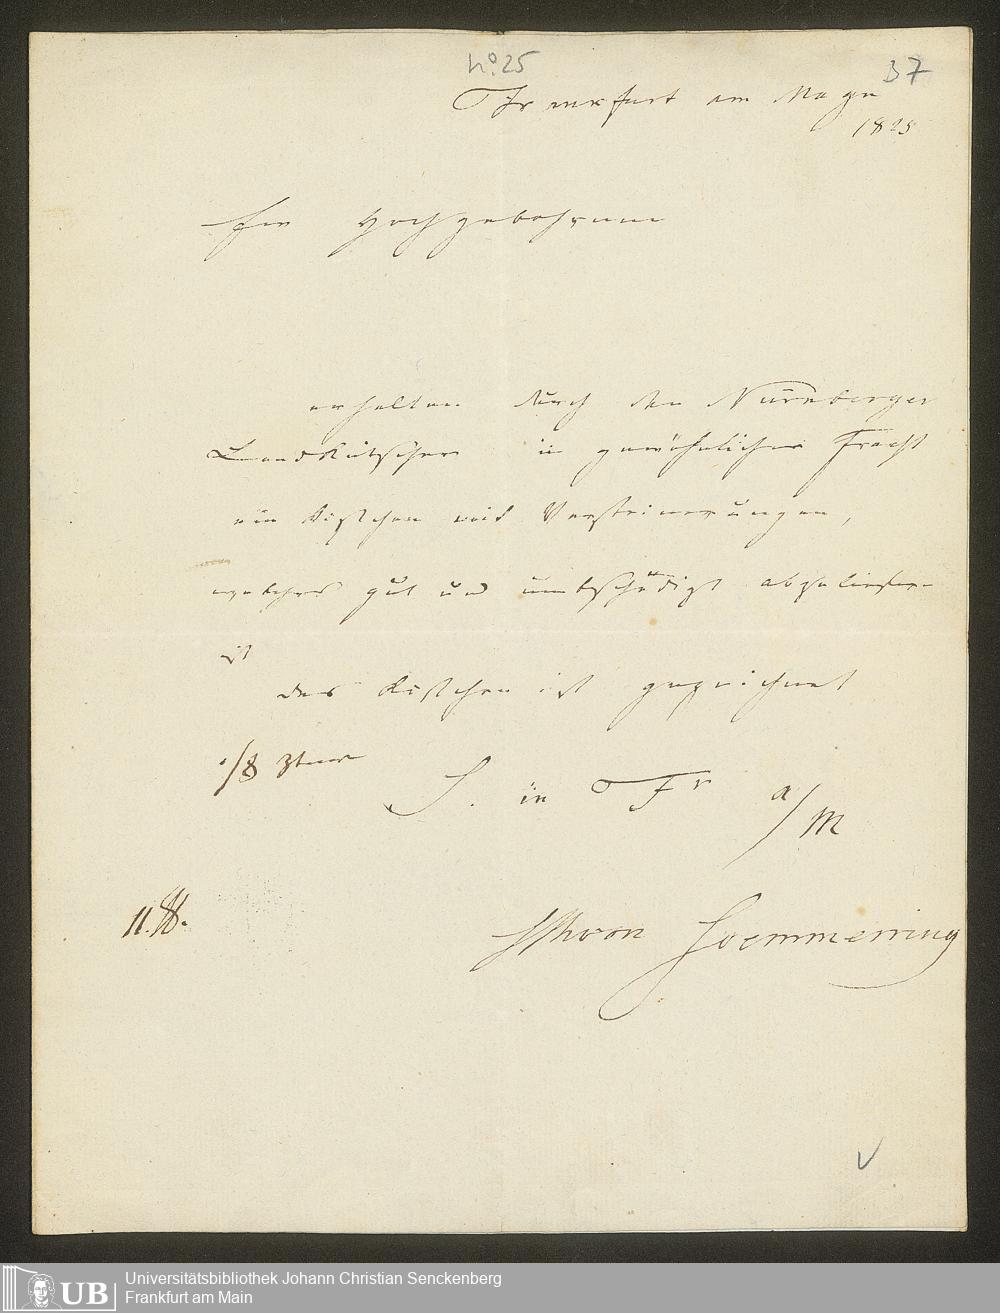 No. 25
B7
Frankfurt am Mayn
1825
Ew Hochgebohrnen
erhalten durch den Nürnberger
Landkutscher in gewöhnlicher Fracht
ein Kistchen mit Versteinerungen,
welches gut und unbeschädigt abzuliefern
ist
das Kistchen ist gezeichnet
S. in Fr a/M
11 ℔.
von Soemmerring
UB
Universitätsbibliothek Johann Christian Senckenberg
Frankfurt am Main